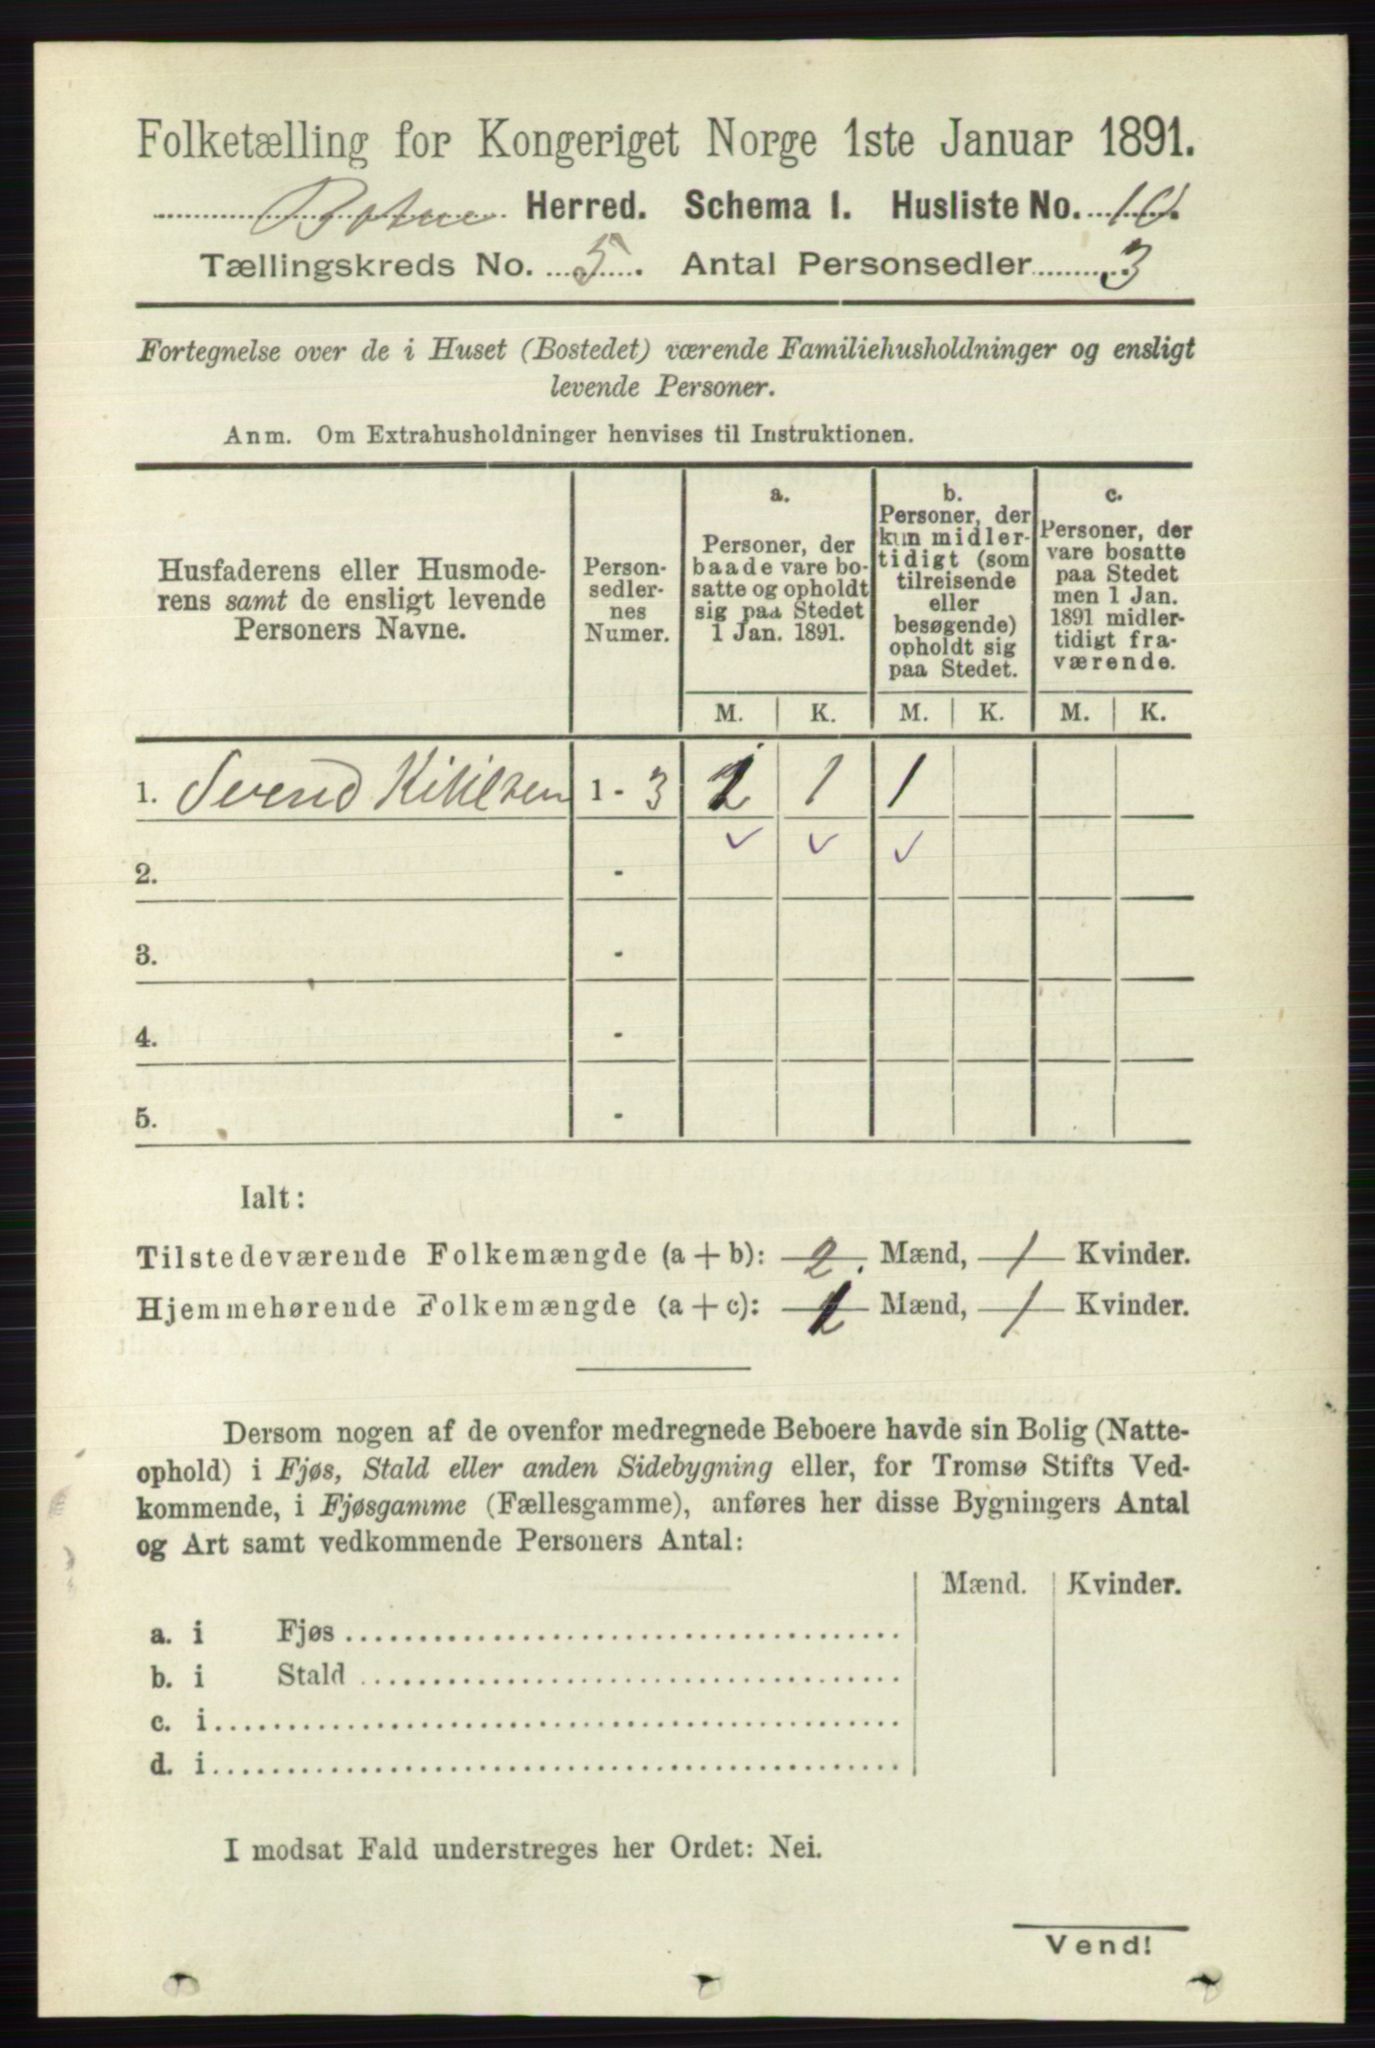 Folketælling for Kongeriget Norge 1ste Januar 1891.
Botne Herred. Schema 1. Husliste No.
Tællingskreds No. 5. Antal Personsedler 3
Fortegnelse over de i Huset (Bostedet) værende Familiehusholdninger og ensligt
levende Personer.
Anm. Om Extrahusholdninger henvises til Instruktionen.
Husfaderens eller Husmode-
rens samt de ensligt levende
Personers Navne.
Person-
sedler-
nes
Numer.
a.
Personer, der
baade vare bo-
satte og opholdt
sig paa Stedet
1 Jan. 1891.
b.
Personer, der
kun midler-
tidigt (som
tilreisende
eller
besøgende)
opholdt sig
paa Stedet.
c.
Personer, der
vare bosatte
paa Stedet
men 1 Jan.
1891 midler-
tidigt fra-
værende.
M. K. M. K. M. K.
1. Svend 1 - 3 1 1 1
2. -
3. -
4. -
5. -
Ialt:
Tilstedeværende Folkemængde (a + b): 2. Mænd, 1 Kvinder.
Hjemmehørende Folkemængde (a + c): 1 Mænd, 1 Kvinder.
Dersom nogen af de ovenfor medregnede Beboere havde sin Bolig (Natte-
ophold) i Fjøs, Stald eller anden Sidebygning eller, for Tromsø Stifts Ved-
kommende, i Fjøsgamme (Fællesgamme), anføres her disse Bygningers Antal
og Art samt vedkommende Personers Antal:
Mænd. Kvinder.
a. i Fjøs
b. i Stald
c. i
d. i
I modsat Fald understreges her Ordet: Nei.
Vend!